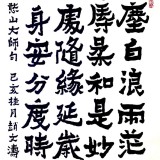 塵白浪兩茫
辱柔和是妙
處隨緣延歲
身安分度時
憨山大師句 己亥桂月趙文濤